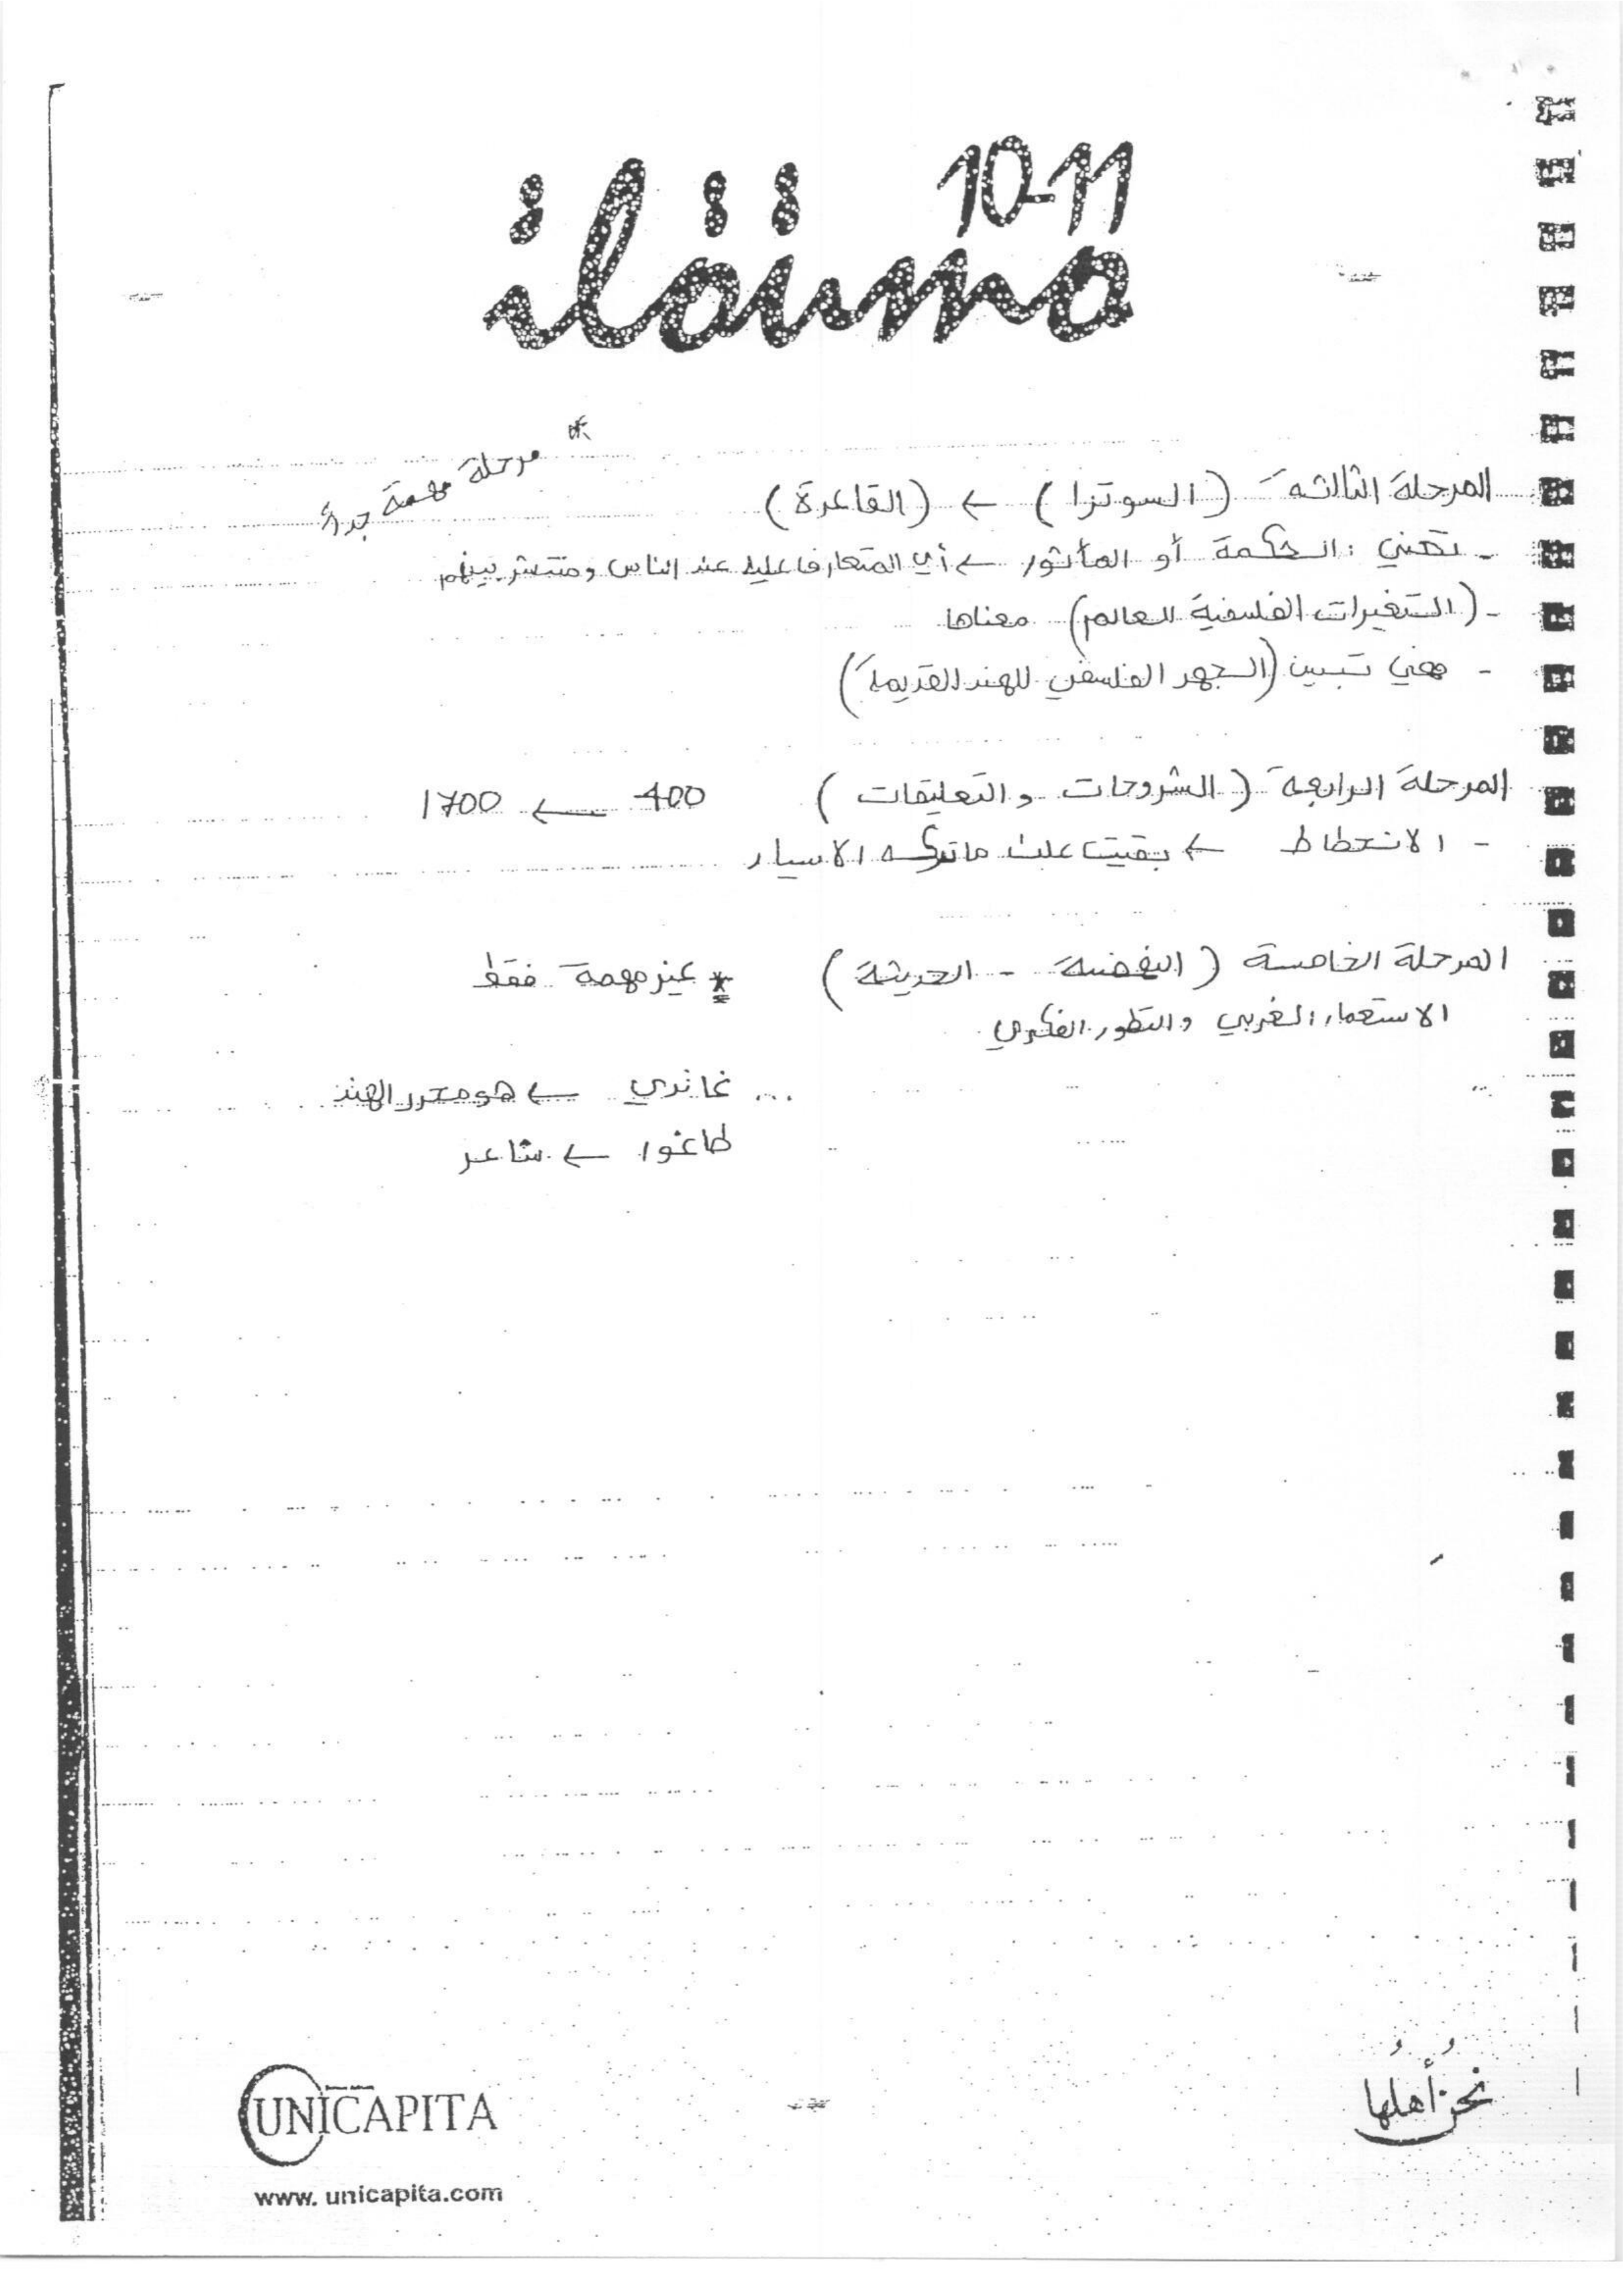 10-11
iloumo
* مرحلة مهمة جداً
المرحلة الثالثة (السوترا) ← (القاعدة)
- تعني : الحكمة أو المأثور ← أي المتعارف عليه عند الناس ومنتشر بينهم
- (التغيرات الفلسفية للعالم) معناها
- فهي تبين (الجهد الفلسفي للهند القديمة)
المرحلة الرابعة (الشروحات والتعليقات) 400 ← 1700
- الانحطاط ← بقيت على ماتركه الاسيار
المرحلة الخامسة (النهضة - الحديثة) * غير مهمة فقط
الاستعمار الغربي والتطور الفكري
... غاندي ← هو محرر الهند
طاغوا ← شاعر
نحن أهلها
UNICAPITA
www. unicapita.com